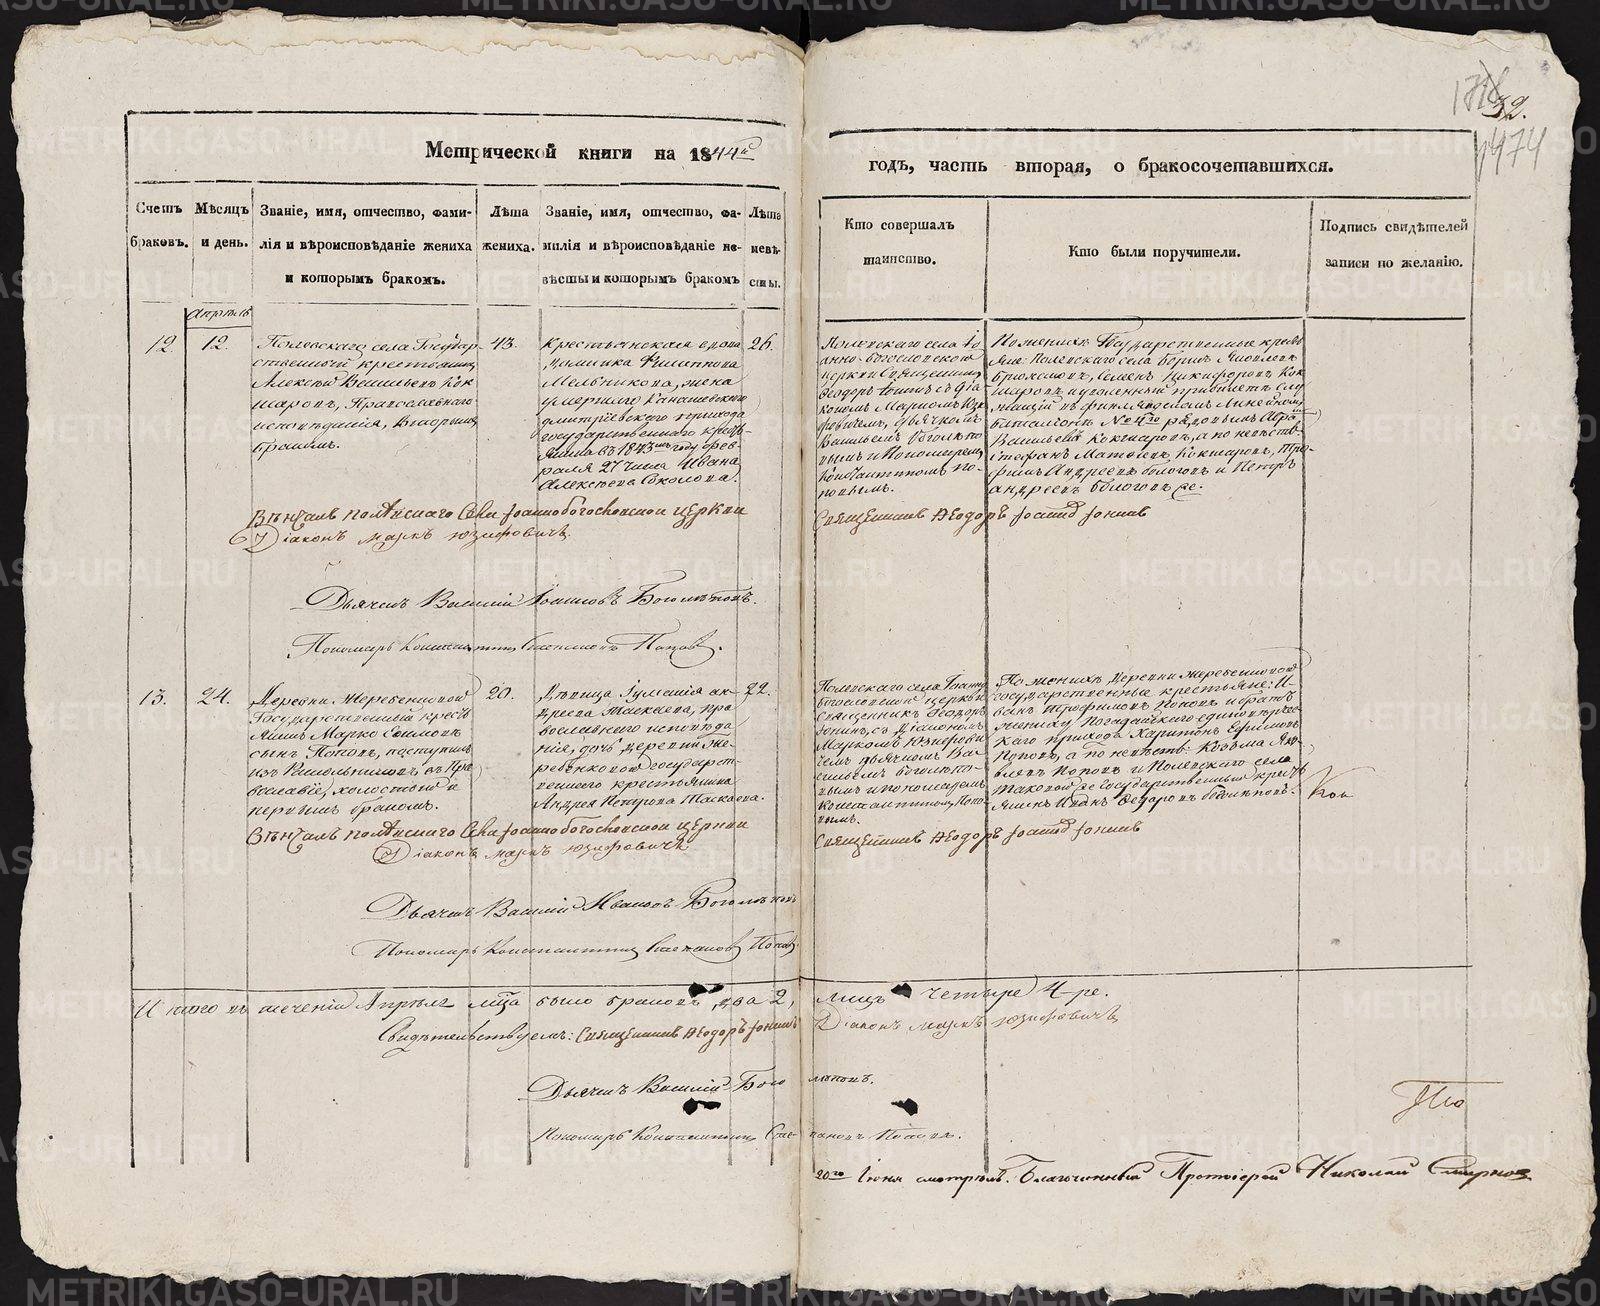 32.
1474
Метрической книги на 1844й
годъ, часть вторая, о бракосочетавшихся.
Счетъ браковъ.
Мѣсяцъ и день.
Званіе, имя, отчество, фами-
лія и вѣроисповѣданіе жениха
и которымъ бракомъ.
Лѣта
жениха.
Званіе, имя, отчество, фа-
милія и вѣроисповѣданіе не-
вѣсты и которымъ бракомъ
Лѣта
невѣ-
сты.
Кто совершалъ
таинство.
Кто были поручители.
Подпись свидѣтелей
записи по желанію.
Апрѣль
12.
12.
Полевскаго села Государ-
ственный крестьянинъ
Алексѣй Васильевъ Кок-
шаровъ, Православнаго
исповѣданія, вторымъ
бракомъ.
43.
Крестьянская вдова
Домника Филиппова
Мельникова, жена
умершаго
прихода
государственнаго кресть-
янина въ 1843мъ году фев-
раля 27 числа Ивана
Алексѣева Соколова.
26.
Полевскаго села Іо-
анно-богословской
церкви Священникъ
Ѳеодоръ Іонинъ съ Діа-
кономъ Маркомъ Юзе-
фовичемъ, дьячкомъ
Васильемъ Боголѣпо-
вымъ и Пономаремъ
Константиномъ По-
повымъ.
По женихѣ Государственные кресть-
яне: Полевскаго села Борисъ Яковлевъ
Семенъ Никифоровъ Кок-
шаровъ
баталіонѣ №4го рядовымъ
Васильевъ Кокшаровъ, а по невѣстѣ-
Стефанъ Матвѣевъ Кокшаровъ, Тро-
фимъ Андреевъ и Петръ
Андреевъ
Вѣнчалъ Полевскаго Села Іоаннобогословской церкви
Священникъ Ѳеодоръ Іонинъ
Діаконъ Маркъ Юзефовичъ.
Дьячекъ Василій Іоанновъ Боголѣповъ.
Пономарь Константинъ Степановъ Поповъ.
13.
24.
Деревни Жеребенковой
Государственный кресть-
янинъ Марко Ефимовъ
сынъ Поповъ, поступивъ
изъ Раскольниковъ въ Пра-
вославіе, холостой и
первымъ бракомъ.
20.
Дѣвица Іуліанія Ан-
дреева Таскаева, пра-
вославнаго исповѣда-
нія, дочь деревни Же-
ребенковой государст-
веннаго крестьянина
Андрея Петрова Таскаева.
22.
Полевскаго села Іоанно
богословской церкви
Священникъ Ѳеодоръ
Іонинъ, съ Діакономъ
Маркомъ Юзефови-
чемъ дьячкомъ Ва-
сильемъ Боголѣпо-
вымъ и пономаремъ
Константиномъ Попо-
вымъ.
По женихѣ Деревни Жеребенковой
государственные крестьяне: И-
ванъ Трофимовъ Поповъ и братъ
жениху единовѣрчес-
каго прихода Харитонъ Ефимовъ
Поповъ, а по невѣстѣ: Козьма Яко-
влевъ Поповъ и Полевскаго села
таковой же государственный кресть-
янинъ Иванъ Ѳедоровъ
Вѣнчалъ Полевскаго Села Іоаннобогословской церкви
Священникъ Ѳеодоръ Іонинъ
Діаконъ Маркъ Юзефовичъ
Дьячекъ Василій Ивановъ Боголѣповъ
Пономарь Константинъ Степановъ Поповъ
И того въ теченіи Апрѣля мца было браковъ два 2, лицъ четыре 4-ре.
Свидѣтельствуемъ: Священникъ Ѳеодоръ Іонинъ
Діаконъ Маркъ Юзефовичъ
Дьячекъ Василій Боголѣповъ.
Пономарь Константинъ Степановъ Поповъ.
20го Іюня смотрѣлъ. Благочинный Протоіерей Николай Смирновъ
METRIKI.GASO-URAL.RU